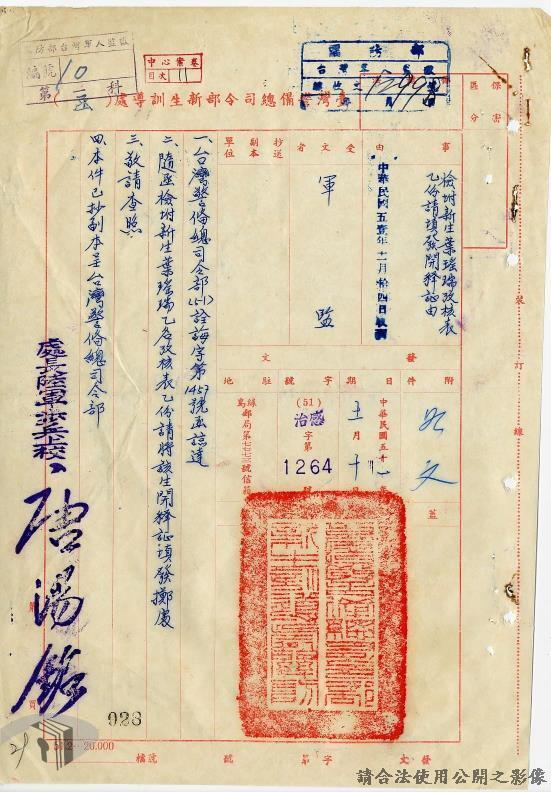 國防部台灣軍人監獄
編號 10
第 科
中心案卷
目次 11
國防部
台灣軍人監獄
總收文 12994
月 日
保密區分
(函)處導訓生新部令司總備警灣臺
事由
檢附新生葉瑤瑞攷核表
乙份請填發開釋証由
中華民國五壹年十一月拾四日收到
受文者
軍監
抄送副本單位
一、台灣警備總司令部(51)詮誨字第1457號函諒達
二、隨函檢附新生葉瑤瑞乙名攷核表乙份請將該生開釋証填發擲處
三、敬請查照
四、本件已抄副本呈台灣警備總司令部
附件
如文
發文
日期
中華民國五十一年
十一月十
字號
(51)
感治字第
1264
號
駐地
綠島郵局第七七三號信箱
蓋
處長陸軍步兵上校
唐湯銘
裝訂線
928
51.2--20.000
發文 字第 號
檔號
請合法使用公開之影像